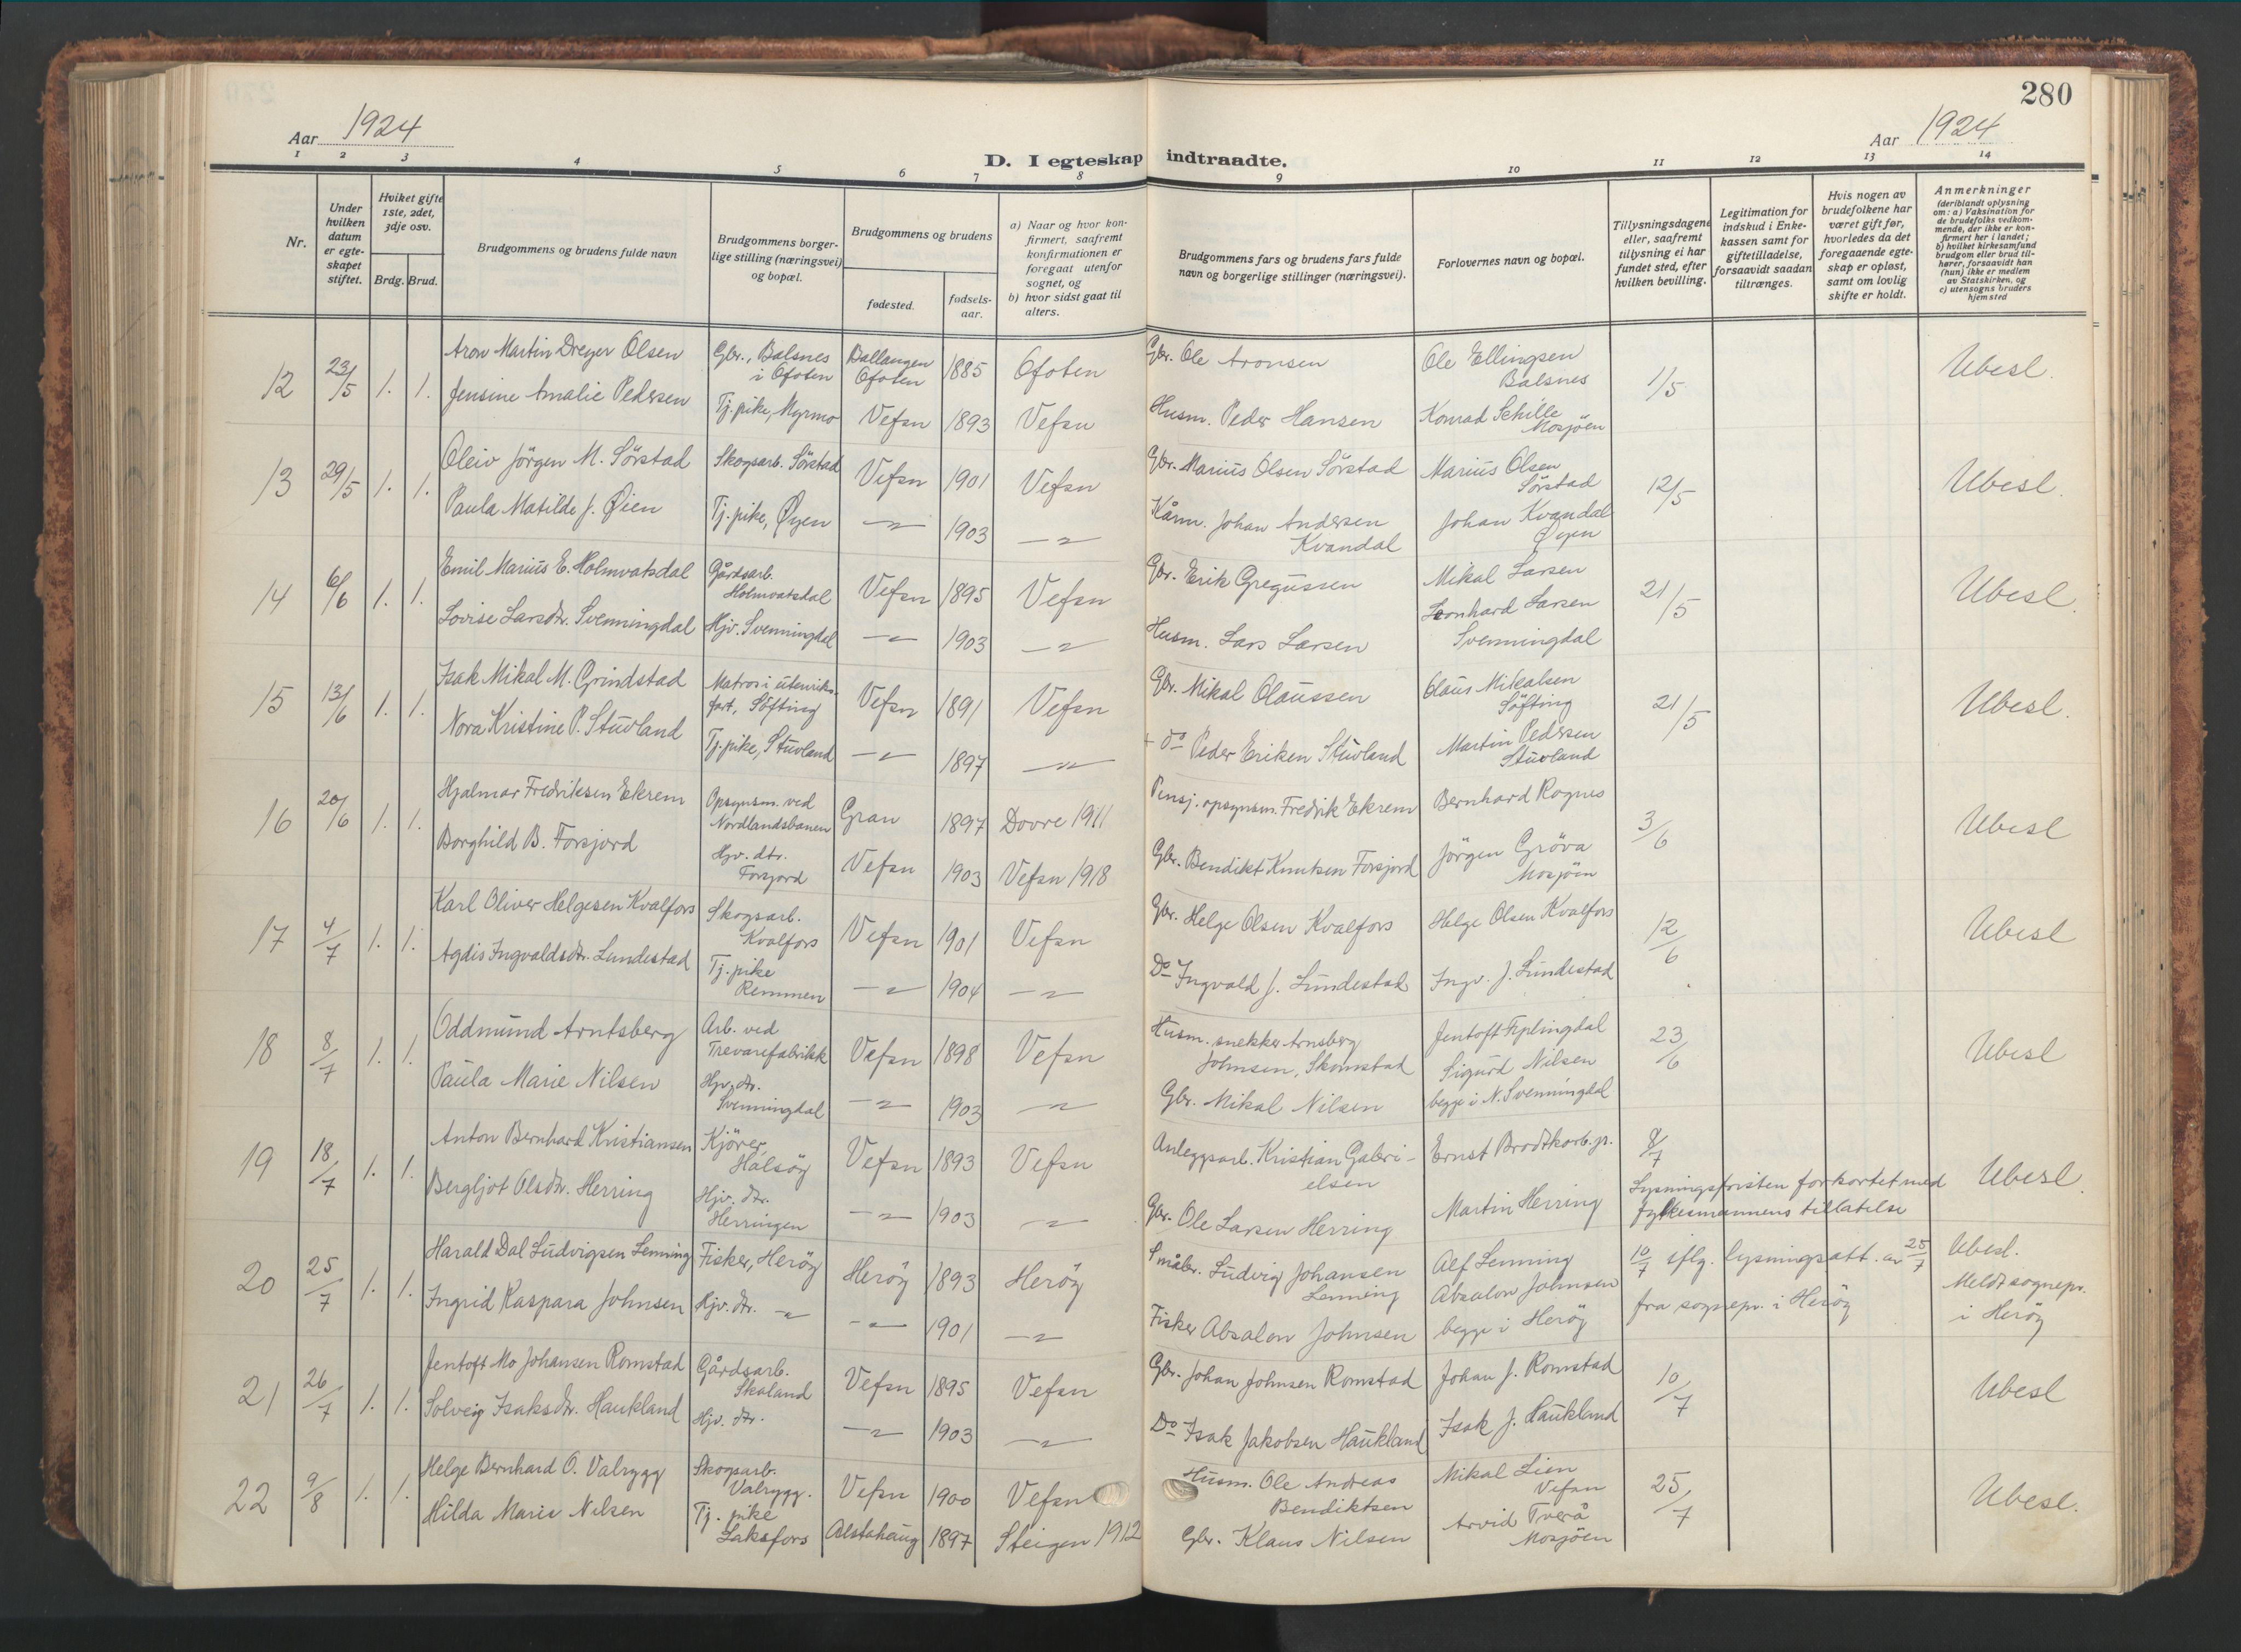 280
Aar 1924
Aar 1924
D. I egteskap indtraadte.
1 2 3 4 5 6 7 8 9 10 11 12 13 14
Nr.
Under hvilken datum er egteskapet stiftet.
Hviket gifte 1ste, 2det, 3dje osv.
Brdg. Brud.
Brudgommens og brudens fulde navn
Brudgommens borgerlige stilling (næringsvei) og bopæl.
Brudgommens og brudens
fødested.
fødsels-aar.
a) Naar og hvor konfirmert, saafremt konfirmationen er foregaat utenfor sognet, og
b) hvor sidst gaat til alters.
Brudgommens fars og brudens fars fulde navn og borgerlige stillinger (næringsvei).
Forlovernes navn og bopæl.
Tillysningsdagene eller, saafremt tillysning ei har fundet sted, efter hvilken bevilling.
Legitimation for indskud i Enkekassen samt for giftetilladelse, forsaavidt saadan tiltrænges.
Hvis nogen av brudefolkene har været gift før, hvorledes da det foregaaende egteskap er opløst, samt om lovlig skifte er holdt.
Anmerkninger (deriblandt oplysning om: a) Vaksination for de brudefolks vedkommende, der ikke er konfirmert her i landet; b) hvilket kirkesamfund brudgom eller brud tilhører, forsaavidt han (hun) ikke er medlem av Statskirken, og c) utensogns bruders hjemsted
12 23/5 1. 1. Aron Martin Dreyer Olsen Gbr., Balsnes i Ofoten Ballangen Ofoten 1885 Ofoten Gbr. Ole Aronsen Ole Ellingsen Balsnes 1/5 Ubesl.
Jensine Amalie Pedersen Tj. pike, Myrmo Vefsn 1893 Vefsn Husm. Peder Hansen Konrad Schille Mosjöen
13 29/5 1. 1. Oleiv Jörgen M. Sörstad Skogsarb. Sörstad Vefsn 1901 Vefsn Gbr. Marius Olsen Sörstad Marius Olsen Sörstad 12/5 Ubesl.
Paula Matilde J. Øien Tj. pike, Øyen -"- 1903 -"- Kårm. Johan Andersen Kvandal Johan Kvandal Øyen
14 6/6 1. 1. Emil Marius E. Holmvatsdal Gårdsarb. Holmvatsdal Vefsn 1895 Vefsn Gbr. Erik Gregussen Mikal Larsen 21/5 Ubesl.
Lovise Larsdtr. Svenningdal Hjv. Svenningdal -"- 1903 -"- Husm. Lars Larsen Leonhard Larsen Svenningdal
15 13/6 1. 1. Isak Mikal M. Grindstad Matros i utenriksfart, Söfting Vefsn 1891 Vefsn Gbr. Mikal Olaussen Olaus Mikalsen Söfting 21/5 Ubesl.
Nora Kristine P. Stuvland Tj. pike, Stuvland -"- 1897 -"- + do Peder Eriken Stuvland Martin Pedersen Stuvland
16 20/6 1. 1. Hjalmar Fredriksen Ekrem Opsynsm. ved Nordlandsbanen Gran 1897 Dovre 1911 Pensj. opsynsm. Fredrik Ekrem Bernhard Rognes 3/6 Ubesl
Borghild B. Forsjord Hjv. dtr. Forsjord Vefsn 1903 Vefsn 1918 Gbr. Bendikt Knutsen Forsjord Jörgen Gröva Mosjöen
17 4/7 1. 1. Karl Oliver Helgesen Kvalfors Skogsarb. Kvalfors Vefsn 1901 Vefsn Gbr. Helge Olsen Kvalfors Helge Olsen Kvalfors 12/6 Ubesl
Agdis Ingvaldsdtr. Lundestad Tj. pike Remmen -"- 1904 -"- Do Ingvald J. Lundestad Ingv. J. Lundestad
18 8/7 1. 1. Oddmund Arntsberg Arb. ved Trevarefabrikk Vefsn 1898 Vefsn Husm. snekker Arnsberg Johnsen, Skomstad Jentoft Fiplingdal 23/6 Ubesl
Paula Marie Nilsen Hjv. dtr. Svenningdal -"- 1903 -"- Gbr. Mikal Nilsen Sigurd Nilsen begge i N. Svenningdal
19 18/7 1. 1. Anton Bernhard Kristiansen Kjörer, Halsöy Vefsn 1893 Vefsn Anleggsarb. Kristian Gabrielsen Ernst Brodtkorb. jr. 8/7 Ubesl.
Bergljot Olsdtr. Herring Hjv. dtr. Herringen -"- 1903 -"- Gbr. Ole Larsen Herring Martin Herring Lysningsfristen forkortet med fylkesmannens tillatelse
20 25/7 1. 1. Harald Dal Ludvigsen Lenning Fisker, Heröy Heröy 1893 Heröy Småbr. Ludvig Johansen Lenning Alf Lenning 10/7 iflg. lysningsatt. av 25/7 Ubesl.
Ingrid Kaspara Johnsen Hjv. dtr. -"- -"- 1901 -"- Fisker Absalon Johnsen Absalon Johnsen begge i Heröy fra sognepr. i Heröy Meldt sognepr. i Heröy
21 26/7 1. 1. Jentoft Mo Johansen Romstad Gårdsarb. Skaland Vefsn 1895 Vefsn Gbr. Johan Johnsen Romstad Johan J. Romstad 10/7 Ubesl
Solveig Isaksdtr. Haukland Hjv. dtr. -"- 1903 -"- Do Isak Jakobsen Haukland Isak J. Haukland
22 9/8 1. 1. Helge Bernhard O. Valrygg Skogsarb. Valrygg. Vefsn 1900 Vefsn Husm. Ole Andreas Bendiktsen Mikal Lien Vefsn 25/7 Ubesl.
Hilda Marie Nilsen Tj. pike Laksfors Alstahaug 1897 Steigen 1912 Gbr. Klaus Nilsen Arvid Tverå Mosjöen